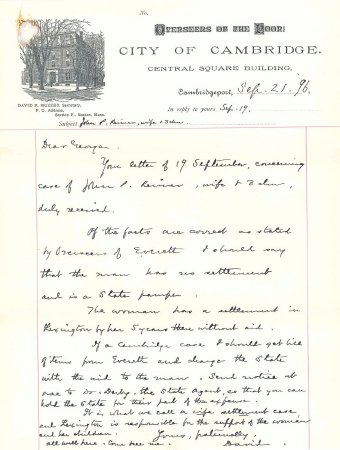 No.
OVERSEERS OF THE POOR.
CITY OF CAMBRIDGE.
CENTRAL SQUARE BUILDING,
Cambridgeport, Sep. 21 '96
DAVID P. MUZZEY, Secretary,
P. O. Address,
Station F, Boston, Mass.
In reply to yours Sep. 19.
Subject John P. wife &
Dear George,
Your letter of 19 September, concerning
case of John P. wife &
duly received.
If the facts are correct as stated
by Overseers of Everett I should say
that the man has no settlement
and is a State pauper.
The woman has a settlement in
Lexington by her 5 years there without aid.
If a Cambridge case I should get bill
of items from Everett and charge the State
with the aid to the man. Send notice at
once to Dr. the State Agent, so that you can
hold the State for their part of the expense.
It is what we call a wife settlement case
and Lexington is responsible for the support of the woman
and her children. Yours, fraternally
all well here. Come see me. David